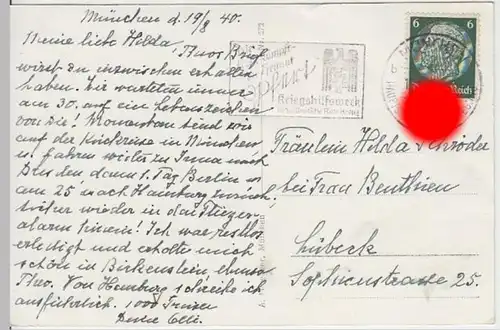 München d. 19/8 40.
Meine liebe Hilda, Theos Brief
wirst du inzwischen erhalten
haben. Wir warteten immer
am 30. auf ein Lebenszeichen
von Dir! Momentan sind wir
auf der Rückreise in München
u. fahren weiter zu Irma nach
Dresden dann 1. Tag Berlin u.
am 25 nach Hamburg zurück
wieder in den Flieger-
alarm hinein! Ich war restlos
erledigt und erholte mich
schön in Birkenstein ebenso
Theo. Von Hamburg schreibe ich
ausführlich. 1000 Grüsse
Deine Elli.
kämpft
opfert
Kriegshilfswerk
6
Reich
Fräulein Hilda Schröder
bei Frau Benthien
Lübeck
Sophienstrasse 25.